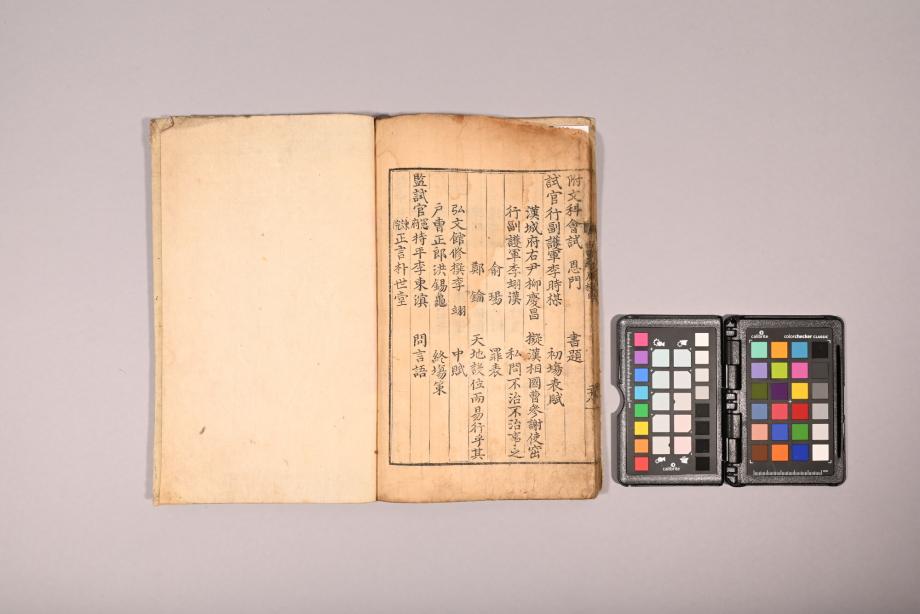 附文科會試 恩門 書題
試官行副護軍李時楳 初場表賦
漢城府右尹柳慶昌 擬漢相國曹參謝使窋
行副護軍李翊漢 私問不治不治事之
俞瑒 罪表
鄭鑰 天地設位而易行乎其
弘文館修撰李翊 中賦
戶曹正郎洪錫龜 終場策
監試官憲府持平李東溟 問言語
諫院正言朴世堂
calibrite
colorchecker CLASSIC
calibrite
calibrite